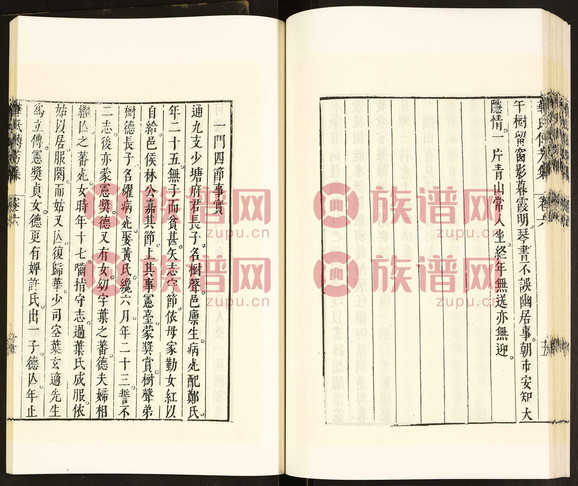 午樹留窗影暮霞明琴書不誤幽居事朝市安知大
隱情一片青山常人坐終年無送亦無迎
一門四節事實
通九支少塘府君長子名樹聲邑廩生病卒配鄭氏
年二十五無子而貧甚矢志守節依母家勤女紅以
自給邑侯林公嘉其節上其事憲臺蒙獎賞樹聲弟
樹德長子名耀病卒娶黃氏纔六月年二十三誓不
二志後亦蒙憲獎德又有女幼字葉之蕃德夫婦相
繼卒之蕃卒女時年十七關情守志過葉氏成服依
姑以居服闋而姑又卒復歸華少司空葉玄適先生
為立傳憲獎貞女德更有嬋許氏出一子德卒年止
華氏傳芳集
卷六
族谱网
zupu.cn
族谱网
zupu.cn
族谱网
zupu.cn
族谱网
zupu.cn